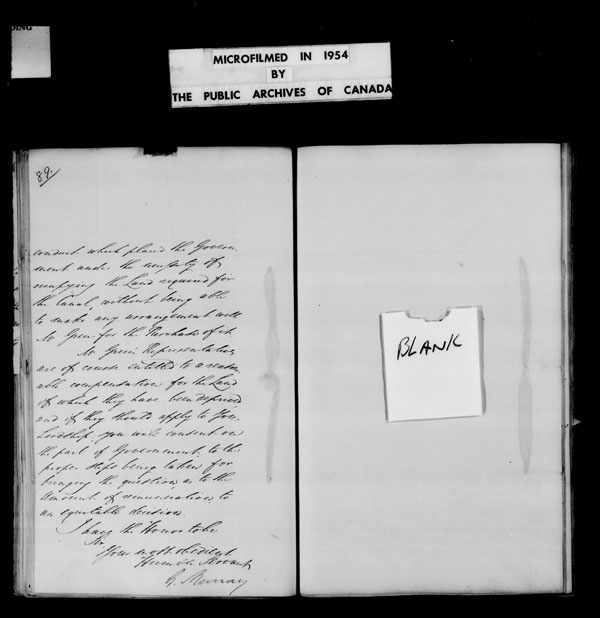 DING
MICROFILMED IN 1954
BY
THE PUBLIC ARCHIVES OF CANADA
89.
conduct which placed the Govern
ment under the necessity of
occupying the Land required for
the Canal, without being able
to make any arrangement with
Mr Green for the Purchase of it.
Mr Green's Representatives
are of course entitled to a reason
able compensation for the Land
of which they have been deprived
and if they should apply to Your
Lordship you will consent on
the part of Government to the
proper steps being taken for
bringing the question as to the
Amount of remuneration to
an equitable decision
I have the Honor to be
Sir
Your most obedient
Humble Servant
G. Murray
BLANK